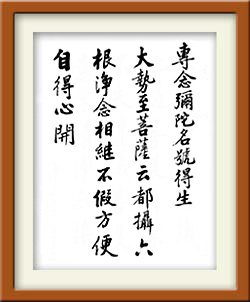 專念彌陀名號得生
大勢至菩薩云都攝六
根淨念相繼不假方便
自得心開